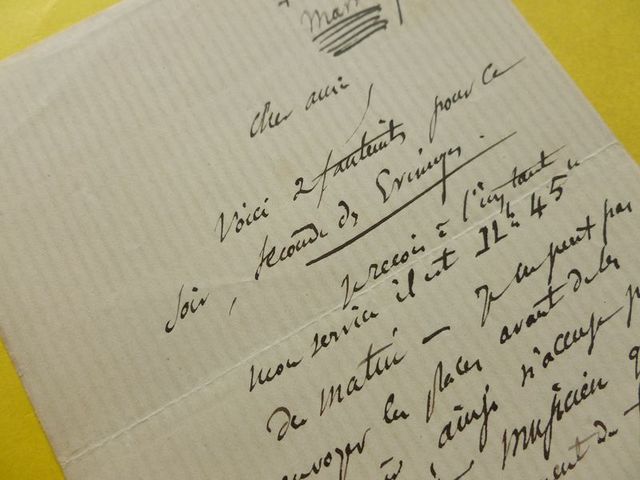 Mar
Cher ami,
Voici 2 fauteuils pour ce
soir, seconde des Erinnyes.
Je reçois à l'instant
mon service il est 11h 45
du matin — Je ne peut pas
envoyer les places avant de les
ainsi n'accuse p
musicien q